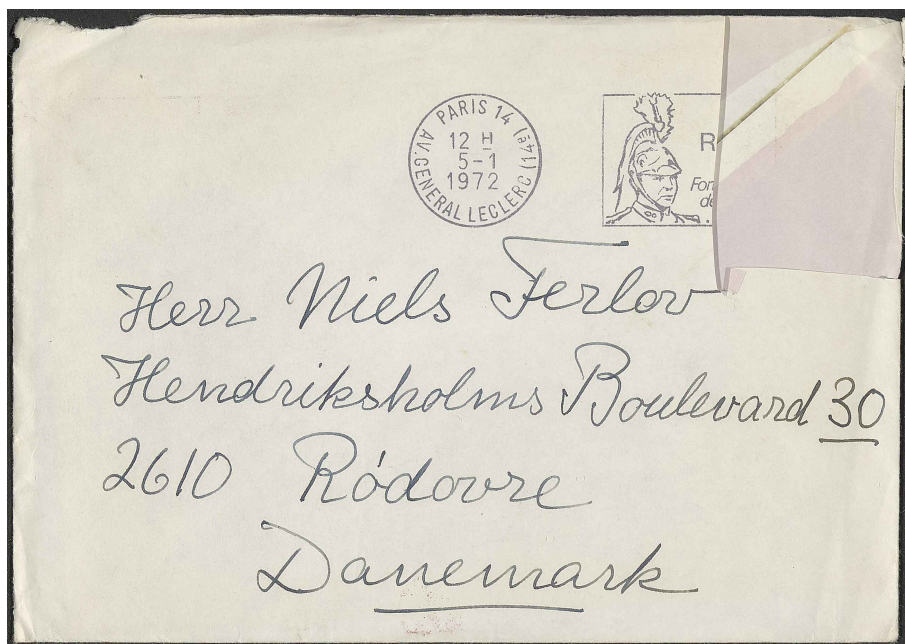 PARIS 14 (14e)
12 H
5-1
1972
AV. GENERAL LECLERC
Herr Niels Ferlov
Hendriksholms Boulevard 30
2610 Ródovre
Danemark